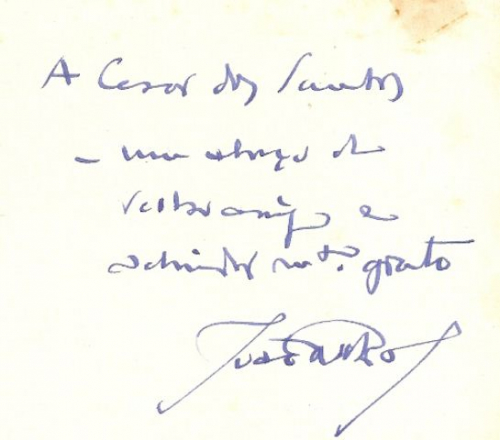 A Cesar dos Santos
– um abraço de
velho amigo e
admirador mto. grato
João de Barros